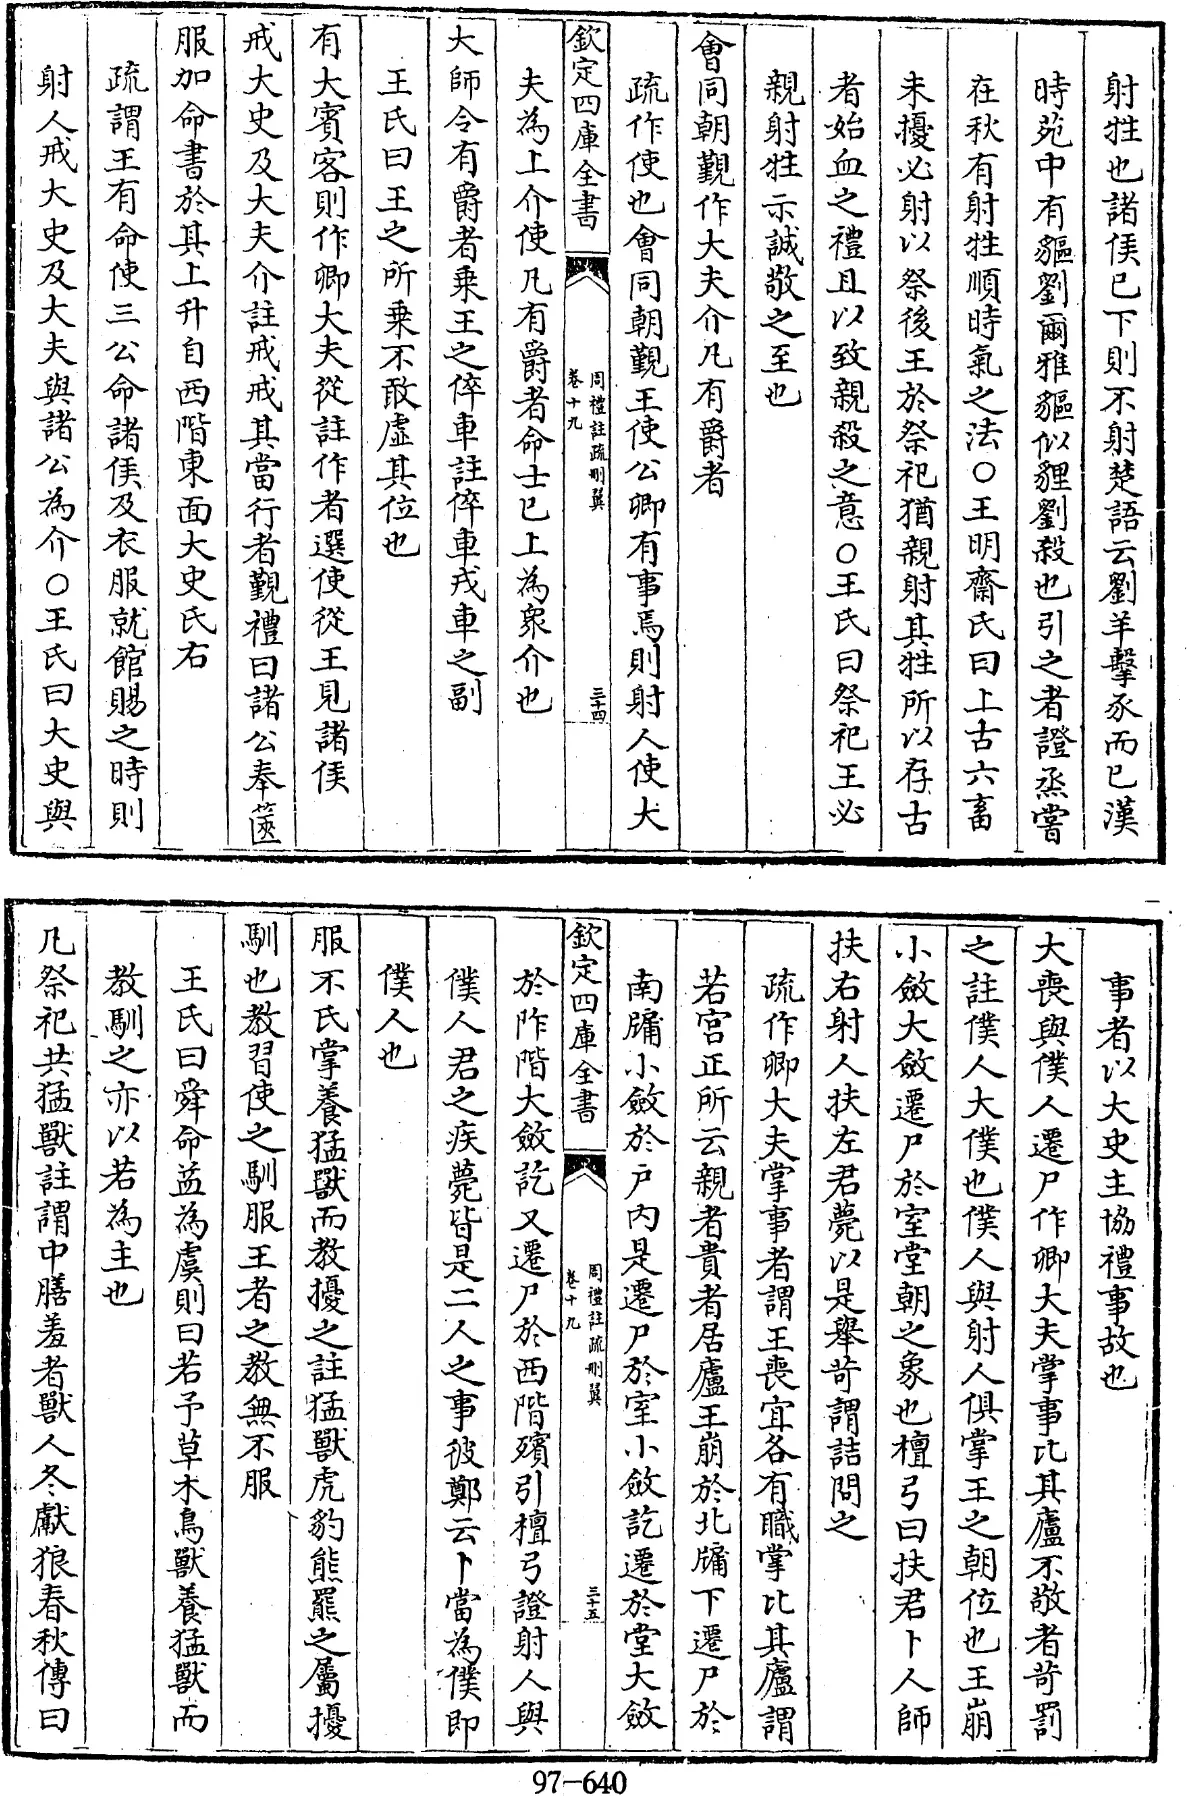 射牲也諸侯已下則不射楚語云劉羊擊豕而已漢
時苑中有貙劉爾雅貙似貍劉殺也引之者證烝嘗
在秋有射牲順時氣之法○王明齋氏曰上古六畜
未擾必射以祭後王於祭祀猶親射其牲所以存古
者始血之禮且以致親殺之意○王氏曰祭祀王必
親射牲示誠敬之至也
會同朝覲作大夫介凡有爵者
疏作使也會同朝覲王使公卿有事焉則射人使大
欽定四庫全書
周禮註疏刪翼
卷十九
三十四
夫為上介使凡有爵者命士已上為衆介也
大師令有爵者乗王之倅車註倅車戎車之副
王氏曰王之所乗不敢虛其位也
有大賓客則作卿大夫從註作者選使從王見諸侯
戒大史及大夫介註戒戒其當行者覲禮曰諸公奉篋
服加命書於其上升自西階東面大史氏右
疏謂王有命使三公命諸侯及衣服就館賜之時則
射人戒大史及大夫與諸公為介○王氏曰大史與
事者以大史主協禮事故也
大喪與僕人遷尸作卿大夫掌事比其廬不敬者苛罰
之註僕人大僕也僕人與射人俱掌王之朝位也王崩
小斂大斂遷尸於室堂朝之象也檀弓曰扶君卜人師
扶右射人扶左君薨以是舉苛謂詰問之
疏作卿大夫掌事者謂王喪宜各有職掌比其廬謂
若宮正所云親者貴者居廬王崩於北牖下遷尸於
南牖小斂於戶內是遷尸於室小斂訖遷於堂大斂
欽定四庫全書
周禮註疏刪翼
卷十九
三十五
於阼階大斂訖又遷尸於西階殯引檀弓證射人與
僕人君之疾薨皆是二人之事彼鄭云卜當為僕即
僕人也
服不氏掌養猛獸而教擾之註猛獸虎豹熊羆之屬擾
馴也教習使之馴服王者之教無不服
王氏曰舜命益為虞則曰若予草木鳥獸養猛獸而
教馴之亦以若為主也
凡祭祀共猛獸註謂中膳羞者獸人冬獻狼春秋傳曰
97-640